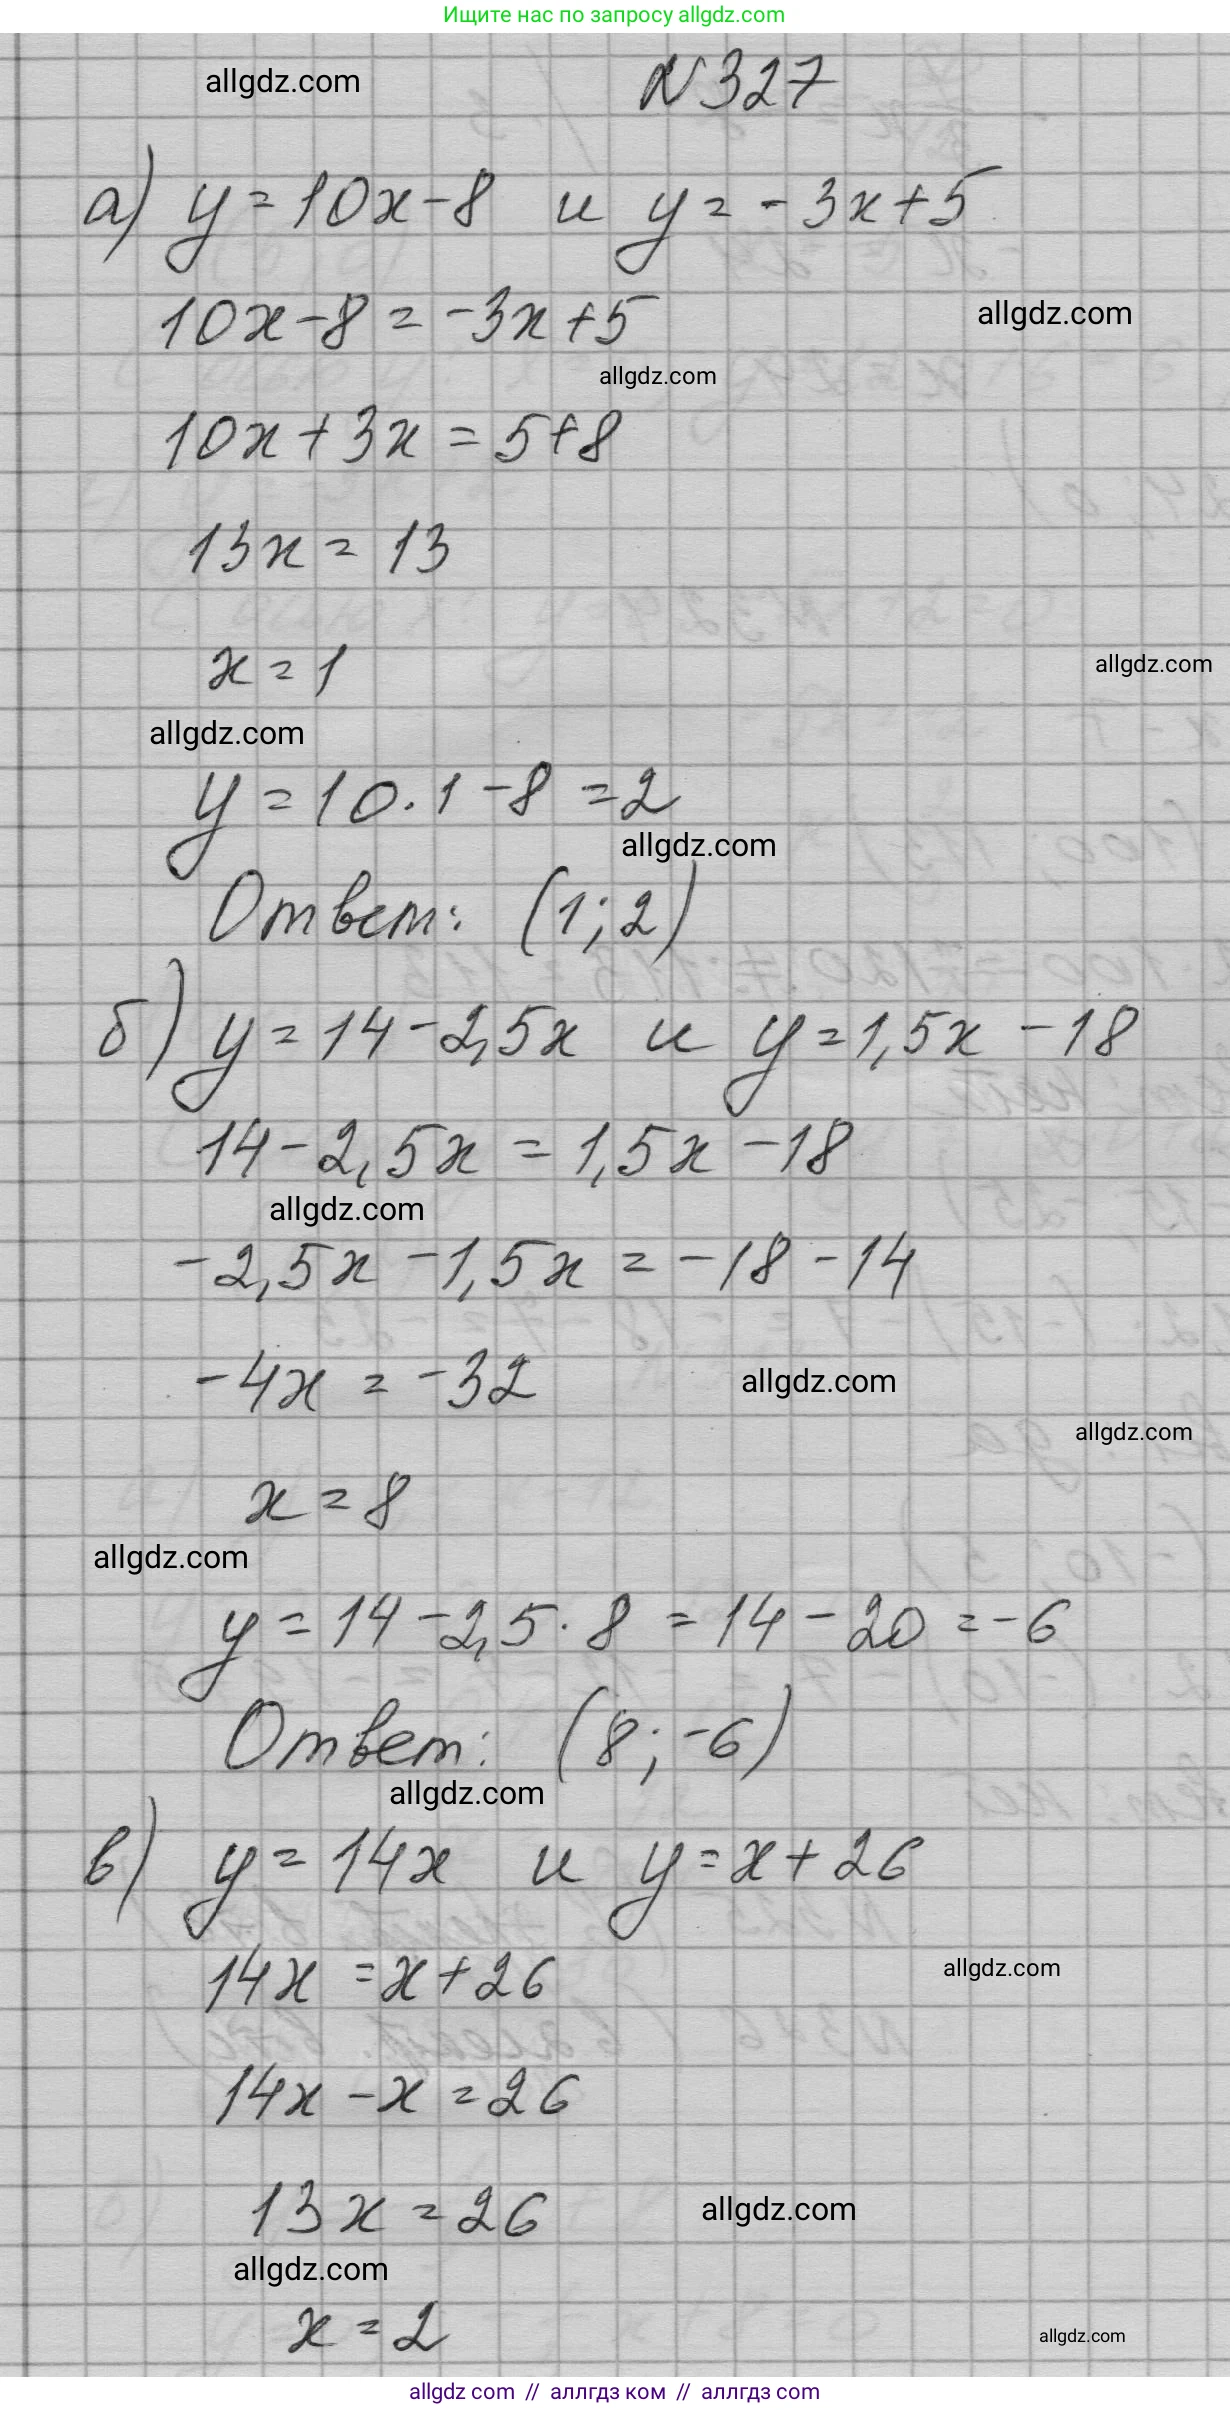 Ищите нас по запросу allgdz.com
allgdz.com
N327
а) y=10x-8 и y=-3x+5
10x-8=-3x+5
allgdz.com
allgdz.com
10x+3x=5+8
13x=13
x=1
allgdz.com
allgdz.com
y=10·1-8=2
allgdz.com
Ответ: (1;2)
б) y=14-2,5x и y=1,5x-18
14-2,5x=1,5x-18
allgdz.com
-2,5x-1,5x=-18-14
-4x=-32
allgdz.com
allgdz.com
x=8
allgdz.com
y=14-2,5·8=14-20=-6
Ответ: (8;-6)
allgdz.com
в) y=14x и y=x+26
14x=x+26
allgdz.com
14x-x=26
13x=26
allgdz.com
allgdz.com
x=2
allgdz.com
allgdz com // аллгдз ком // аллгтз com